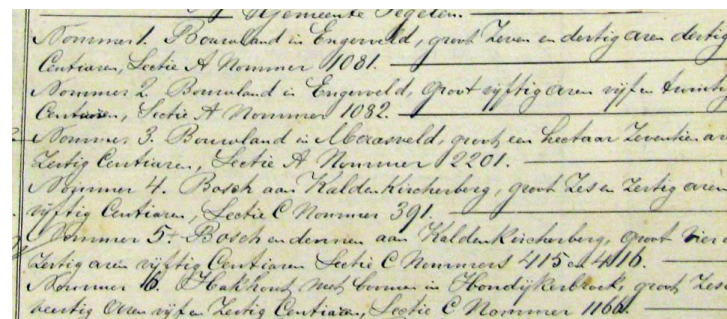 Gemeente Tegelen.
Nommer 1. Bouwland in Engerveld, groot Zeven en dertig aren dertig
Centiaren, Sectie A Nommer 1081.
Nommer 2. Bouwland in Engerveld, groot vijftig aren vijf en twintig
Centiaren, Sectie A Nommer 1082.
Nommer 3. Bouwland in Maasveld, groot een hectaar Zeventien ar
Zestig Centiaren, Sectie A Nommer 2201.
Nommer 4. Bosch aan Kaldenkircherberg, groot Zes en Zestig aren
vijftig Centiaren, Sectie C Nommer 391.
Nommer 5. Bosch en dennen aan Kaldenkircherberg, groot vier e
Zestig aren vijftig Centiaren Sectie C Nommers 415 en 416.
Nommer 6. Hakhout met boomen in Hondijkerbroek, groot Zes
veertig aren vijf en Zestig Centiaren, Sectie C Nommer 1166.